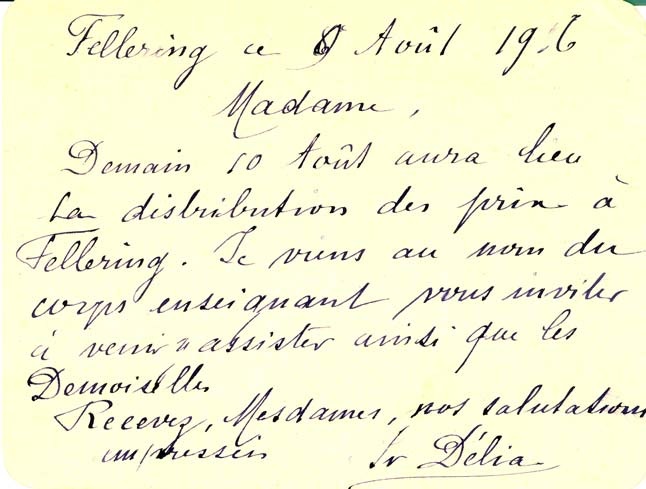 Fellering ce 9 Août 1916
Madame,
Demain 10 Août aura lieu
la distribution des prix à
Fellering. Je viens au nom du
corps enseignant vous inviter
à venir y assister ainsi que les
Demoiselles
Recevez, Mesdames, nos salutations
empressées
Sr Délia